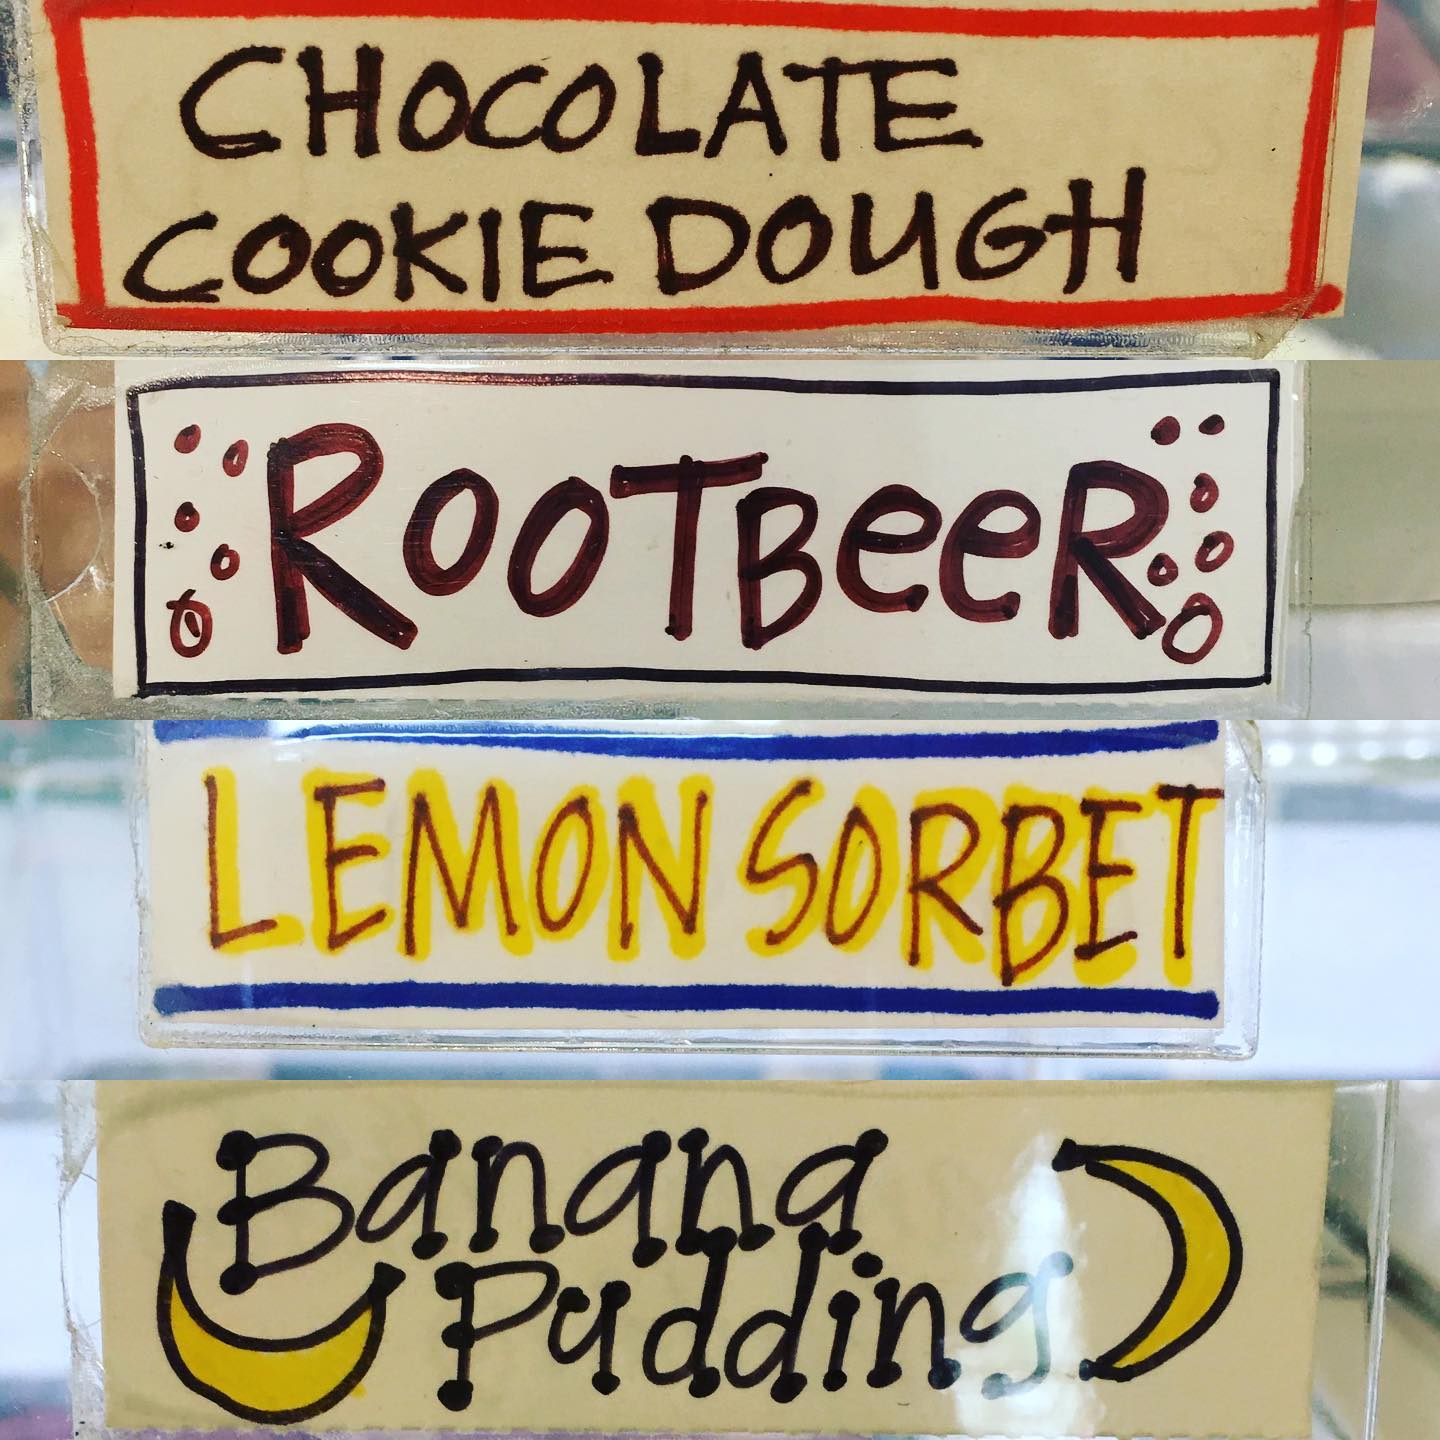 CHOCOLATE
COOKIE DOUGH
ROOTBeeR
LEMON SORBET
Banana
Pudding